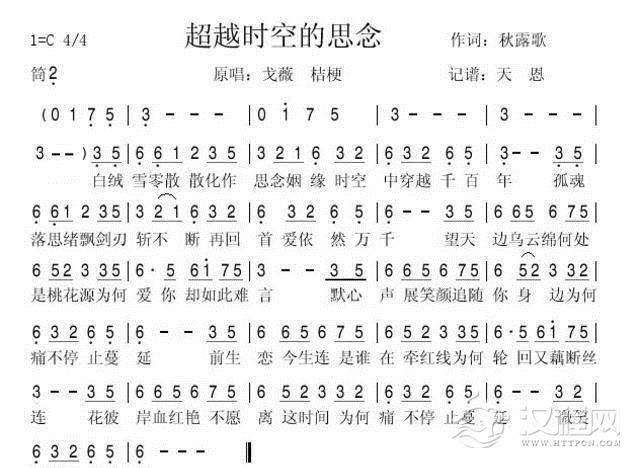 1=C 4/4 超越时空的思念 作词：秋露歌
筒2 原唱：戈薇 桔梗 记谱：天 恩
(0 1 7 5 | 3 - - - | 0 1 7 5 | 3 - - - |
3 - - ) 3 5 | 6 6 1 2 3 5 | 3 2 1 6 3 2 | 6 3 2 6 6 5 | 3 - - 3 5 |
白绒 雪零散 散化作 思念姻 缘时空 中穿越 千百 年 孤魂
6 61 2 35 | 3 21 6 3 2 | 6 3 2 6 5 | 3 - 3 5 | 6 65 6 75 |
落思绪飘剑刃 斩不 断再回 首爱依 然万 千 望天 边乌云绵何处
6 52 3 32 | 6· 5 61 75 | 3 - - 3 5 | 6 765 6 75 | 6 52 3 32 |
是桃花源为何 爱 你 却如此难 言 默心 声 展笑颜追随 你 身 边为何
6 32 6 5 | 6 - 3 5 | 6 765 6 75 | 6 765 6 75 | 6· 5 61 75 |
痛不停 止蔓 延 前生 恋 今生连 是谁 在 牵红线为何 轮 回又藕断丝
3 - 3 5 | 6 765 6 75 | 6 52 3 32 | 6 32 6 5 | 6 - 3 2 |
连 花彼 岸血红艳 不愿 离 这时间 为何 痛 不停 止蔓 延 微笑
6 32 6 5 | 6 - -
汉程网
WWW.HTTPCN.COM